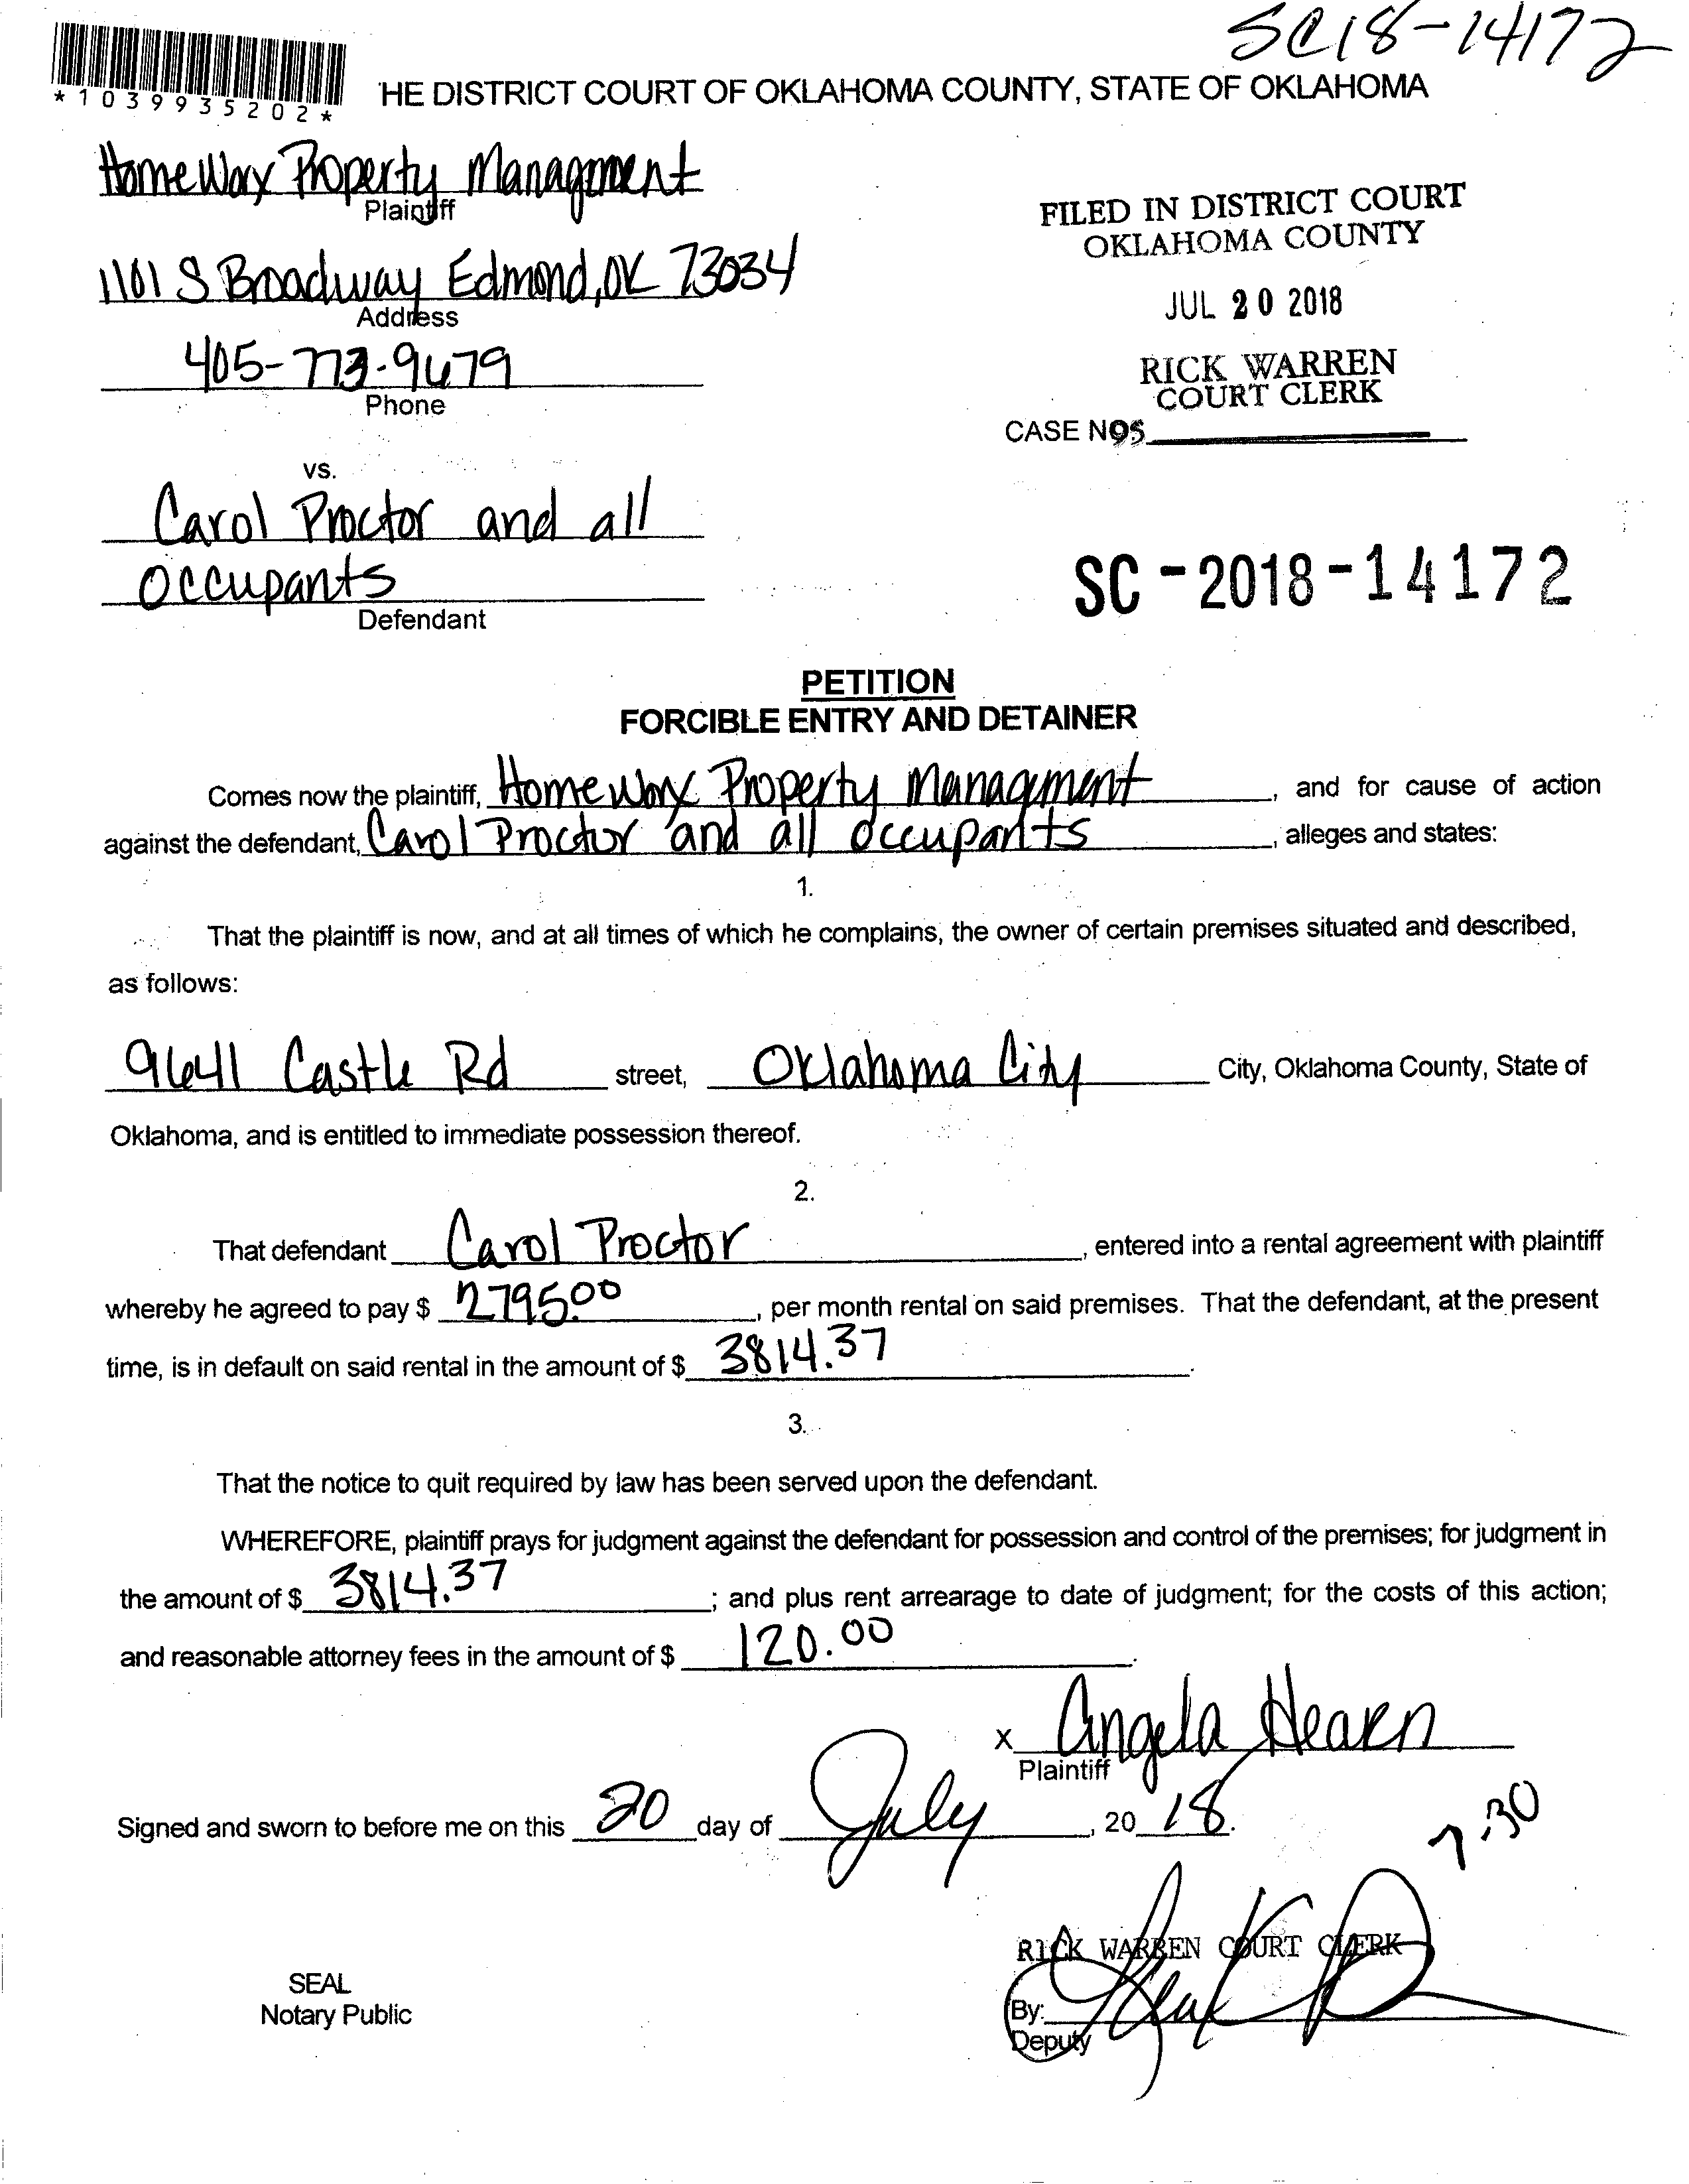 SC18-14172
*1039935202*
'HE DISTRICT COURT OF OKLAHOMA COUNTY, STATE OF OKLAHOMA
HomeWorx Property Managment
Plaintiff
FILED IN DISTRICT COURT
OKLAHOMA COUNTY
1101 S Broadway Edmond, OK 73034
Address
JUL 20 2018
405-773-9679
Phone
RICK WARREN
COURT CLERK
CASE NO
vs.
Carol Proctor and all
occupants
Defendant
SC-2018-14172
PETITION
FORCIBLE ENTRY AND DETAINER
Comes now the plaintiff, HomeWorx Property Managment, and for cause of action
against the defendant, Carol Proctor and all occupants, alleges and states:
1.
That the plaintiff is now, and at all times of which he complains, the owner of certain premises situated and described,
as follows:
9641 Castle Rd street, Oklahoma City City, Oklahoma County, State of
Oklahoma, and is entitled to immediate possession thereof.
2.
That defendant Carol Proctor, entered into a rental agreement with plaintiff
whereby he agreed to pay $ 2795.00, per month rental on said premises. That the defendant, at the present
time, is in default on said rental in the amount of $ 3814.37.
3.
That the notice to quit required by law has been served upon the defendant.
WHEREFORE, plaintiff prays for judgment against the defendant for possession and control of the premises; for judgment in
the amount of $ 3814.37; and plus rent arrearage to date of judgment; for the costs of this action;
and reasonable attorney fees in the amount of $ 120.00.
x Angela Hearn
Plaintiff
Signed and sworn to before me on this 20 day of July, 20 18.
7-30
RICK WARREN COURT CLERK
SEAL
Notary Public
By:
Deputy